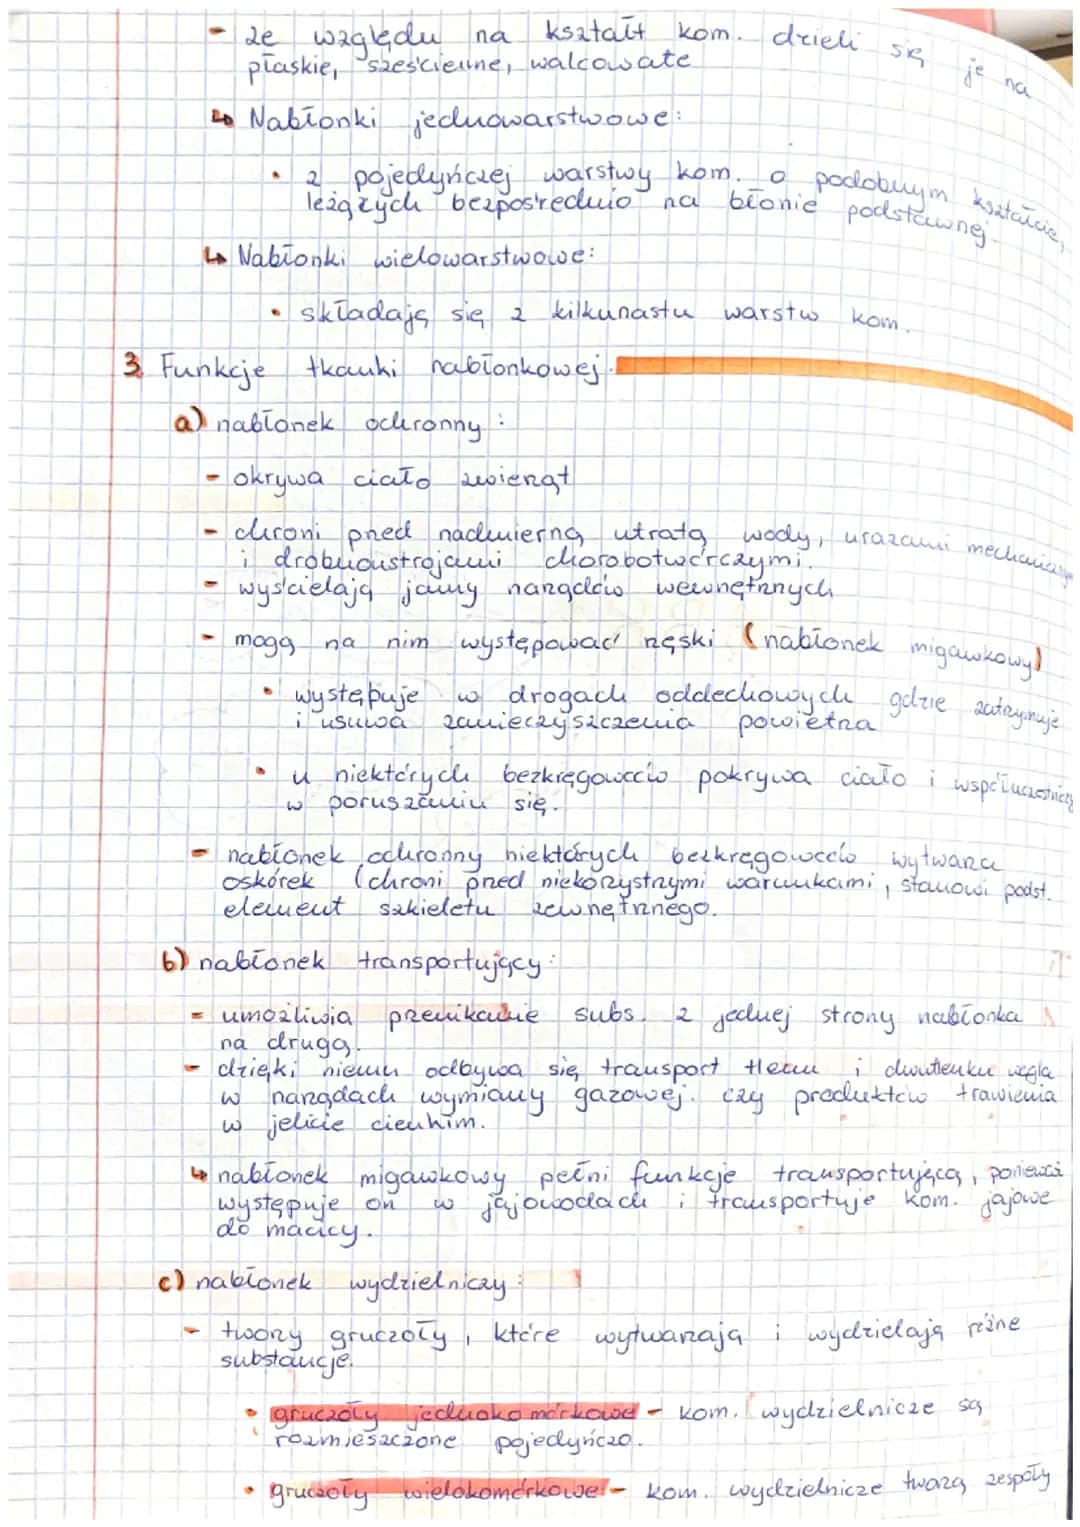 - ze względu na kształt kom. dzieli się je na
płaskie, sześcienne, walcowate
↳ Nabłonki jednowarstwowe:
• z pojedyńczej warstwy kom. o podobnym kształcie,
leżących bezpośrednio na błonie podstawnej.
↳ Nabłonki wielowarstwowe:
• składają się z kilkunastu warstw kom.
3. Funkcje tkanki nabłonkowej.
a) nabłonek ochronny:
- okrywa ciało zwierząt
- chroni przed nadmierną utratą wody, urazami
i drobnoustrojami chorobotwórczymi.
- wyścielają jamy narządów wewnętrznych
- mogą na nim występować rzęski (nabłonek migawkowy)
• występuje w drogach oddechowych gdzie zatrzymuje
i usuwa zanieczyszczenia powietrza
• u niektórych bezkręgowców pokrywa ciało i współuczestniczy
w poruszaniu się.
- nabłonek ochronny niektórych bezkręgowców wytwarza
oskórek (chroni przed niekorzystnymi warunkami, stanowi podst.
element szkieletu zewnętrznego.
b) nabłonek transportujący:
- umożliwia przenikanie subs. z jednej strony nabłonka
na drugą.
- dzięki niemu odbywa się transport tlenu i dwutlenku węgla
w narządach wymiany gazowej. czy produktów trawienia
w jelicie cienkim.
↳ nabłonek migawkowy pełni funkcje transportującą, ponieważ
występuje on w jajowodach i transportuje kom. jajowe
do macicy.
c) nabłonek wydzielniczy:
- tworzy gruczoły, które wytwarzają i wydzielają różne
substancje.
• gruczoły jednokomórkowe - kom. wydzielnicze są
rozmieszczone pojedyńczo.
• gruczoły wielokomórkowe - kom. wydzielnicze tworzą zespoły